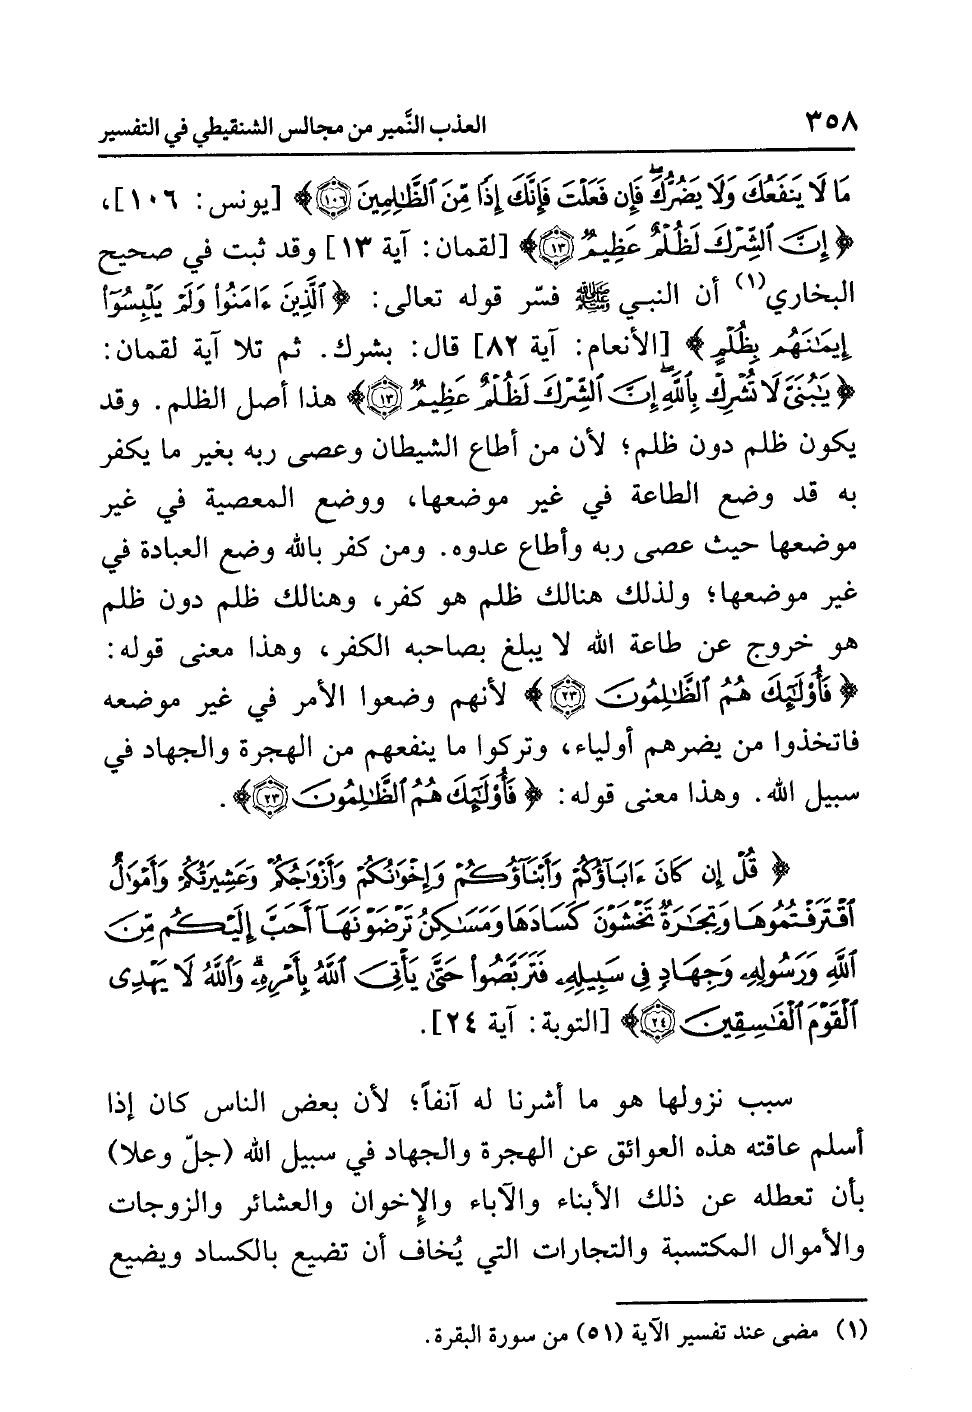 ٣٥٨ العذب النَّمير من مجالس الشنقيطي في التفسير
مَا لَا يَنفَعُكَ وَلَا يَضُرُّكَۖ فَإِن فَعَلْتَ فَإِنَّكَ إِذًا مِّنَ ٱلظَّـٰلِمِينَ ﴿١٠٦﴾﴾ [يونس: ١٠٦]،
﴿إِنَّ ٱلشِّرْكَ لَظُلْمٌ عَظِيمٌ ﴿١٣﴾﴾ [لقمان: آية ١٣] وقد ثبت في صحيح
البخاري(١) أن النبي ﷺ فسّر قوله تعالى: ﴿ٱلَّذِينَ ءَامَنُوا۟ وَلَمْ يَلْبِسُوٓا۟
إِيمَـٰنَهُم بِظُلْمٍ﴾ [الأنعام: آية ٨٢] قال: بشرك. ثم تلا آية لقمان:
﴿يَـٰبُنَىَّ لَا تُشْرِكْ بِٱللَّهِۖ إِنَّ ٱلشِّرْكَ لَظُلْمٌ عَظِيمٌ ﴿١٣﴾﴾ هذا أصل الظلم. وقد
يكون ظلم دون ظلم؛ لأن من أطاع الشيطان وعصى ربه بغير ما يكفر
به قد وضع الطاعة في غير موضعها، ووضع المعصية في غير
موضعها حيث عصى ربه وأطاع عدوه. ومن كفر بالله وضع العبادة في
غير موضعها؛ ولذلك هنالك ظلم هو كفر، وهنالك ظلم دون ظلم
هو خروج عن طاعة الله لا يبلغ بصاحبه الكفر، وهذا معنى قوله:
﴿فَأُو۟لَـٰٓئِكَ هُمُ ٱلظَّـٰلِمُونَ ﴿٢٣﴾﴾ لأنهم وضعوا الأمر في غير موضعه
فاتخذوا من يضرهم أولياء، وتركوا ما ينفعهم من الهجرة والجهاد في
سبيل الله. وهذا معنى قوله: ﴿فَأُو۟لَـٰٓئِكَ هُمُ ٱلظَّـٰلِمُونَ ﴿٢٣﴾﴾.
﴿قُلْ إِن كَانَ ءَابَآؤُكُمْ وَأَبْنَآؤُكُمْ وَإِخْوَٰنُكُمْ وَأَزْوَٰجُكُمْ وَعَشِيرَتُكُمْ وَأَمْوَٰلٌ
ٱقْتَرَفْتُمُوهَا وَتِجَـٰرَةٌ تَخْشَوْنَ كَسَادَهَا وَمَسَـٰكِنُ تَرْضَوْنَهَآ أَحَبَّ إِلَيْكُم مِّنَ
ٱللَّهِ وَرَسُولِهِۦ وَجِهَادٍ فِى سَبِيلِهِۦ فَتَرَبَّصُوا۟ حَتَّىٰ يَأْتِىَ ٱللَّهُ بِأَمْرِهِۦۗ وَٱللَّهُ لَا يَهْدِى
ٱلْقَوْمَ ٱلْفَـٰسِقِينَ ﴿٢٤﴾﴾ [التوبة: آية ٢٤].
سبب نزولها هو ما أشرنا له آنفاً؛ لأن بعض الناس كان إذا
أسلم عاقته هذه العوائق عن الهجرة والجهاد في سبيل الله (جلّ وعلا)
بأن تعطله عن ذلك الأبناء والآباء والإخوان والعشائر والزوجات
والأموال المكتسبة والتجارات التي يُخاف أن تضيع بالكساد ويضيع
(١) مضى عند تفسير الآية (٥١) من سورة البقرة.